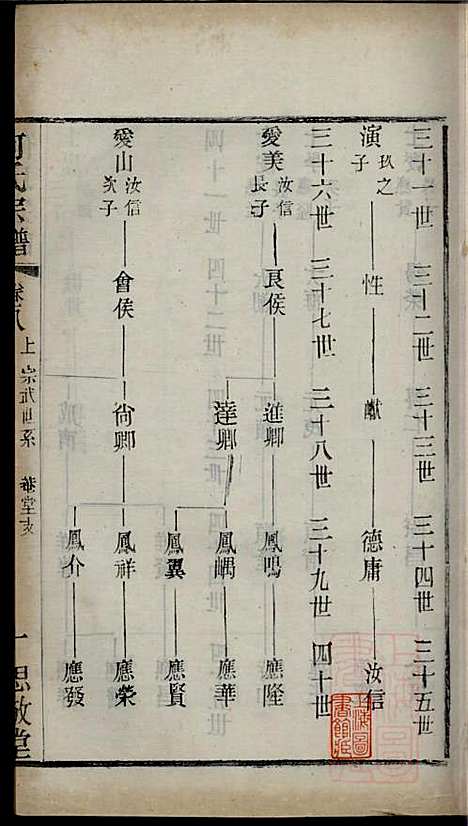 三十一世 三十二世 三十三世 三十四世 三十五世
演 玖之子 性 獻 德庸 汝信
三十六世 三十七世 三十八世 三十九世 四十世
愛美 汝信長子 良侯 進卿 鳳鳴 應隆
達卿 鳳嵎 應華
鳳翼 應賢
愛山 汝信次子 會侯 尙卿 鳳祥 應榮
鳳介 應發
何氏宗譜 卷八上 宗武世系 一 思敬堂
上海圖書館藏